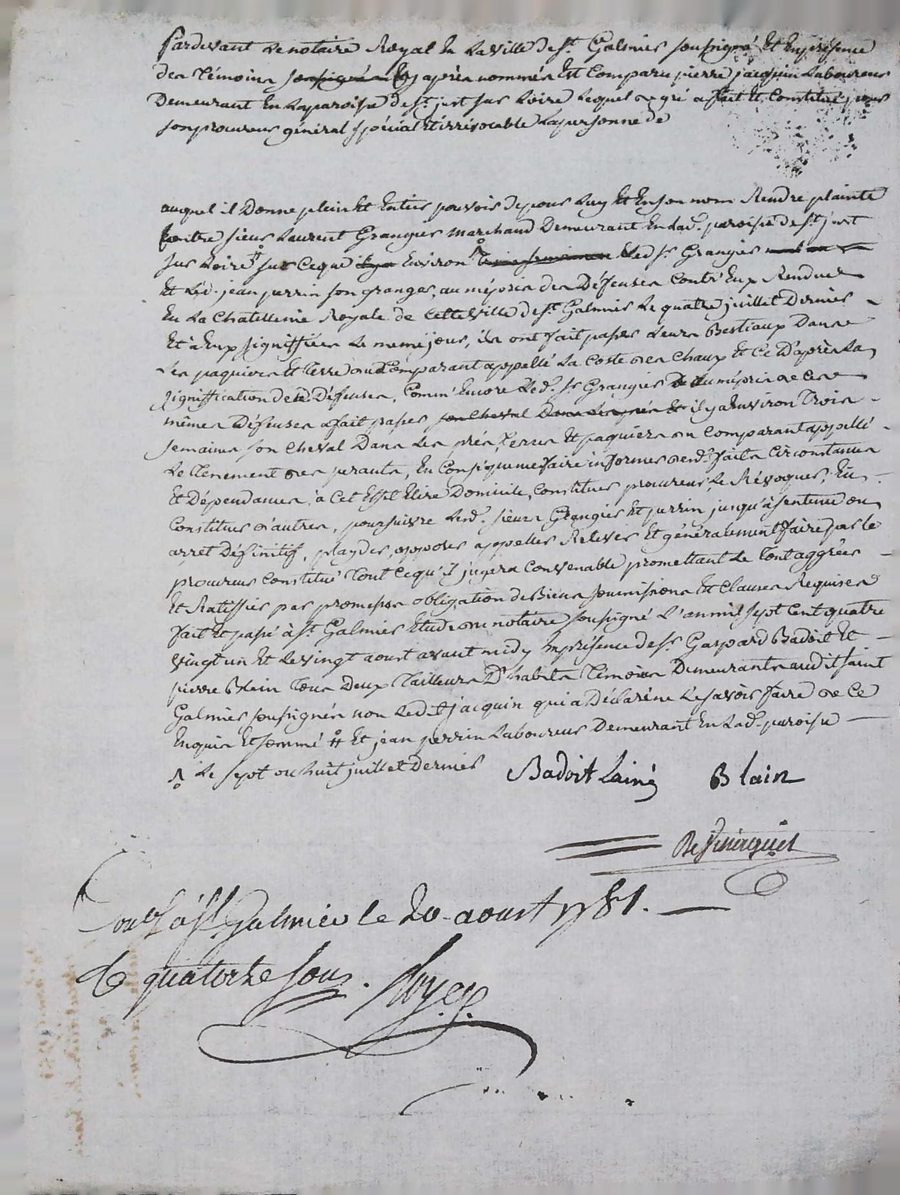 Pardevant Le notaire Royal En La ville de st. Galmier soussigné Et En présence
des Témoins soussignés Ey après nommés Est Comparu pierre jacquin Laboureur
Demeurant En La paroisse de st. just sur Loire Lequel de gré a fait Et Constitué pour
son procureur général spécial Et irrévocable La personne de
auquel il Donne plein Et Entier pouvoir de pour Luy Et En son nom Rendre plainte
Contre sieur Laurent Grangier Marchand Demeurant En lad. paroisse de st. just
sur Loire # sur Ceque Environ Led sr. Grangier
Et Led. jean perrin son granger, au mépris des Défenses Contr'Eux Rendues
En La Chatellenie Royale de Cette ville de st. Galmier Le quatre juillet Dernier
Et à Eux signiffiées Le même jour, ils ont fait passer Leurs Bestiaux Dans
Les paquiers Et Terre du Comparant appellé La Coste des Chaux Et Ce D'après La
signiffication desd. Défenses, Comm' Encore Led. sr. Grangier au mépris de Ces
mêmes Défenses a fait passer son Cheval Dans Les prés Et il y a Environ Trois
semaines son Cheval Dans Les prés, Terres Et paquiers du Comparant appellé
Le Tenement des, En Conséquence faire informer desd. faits Circonstances
Et Dépendances, à Cet Effet Elire Domicile, Constituer procureur, Le Révoquer, En
Constituer d'autres, poursuivre Lesd. sieurs Grangier Et perrin jusqu'à sentence ou
arret Définitif, playder, opposer appeller Relever Et généralement faire par le
procureur Constitué Tout Cequ'il jugera Convenable promettant Le Tout aggréer
Et Ratiffier par promesse obligation de Biens soumissions Et Clauses Requises
fait Et passé à st. Galmier Etude du notaire soussigné L'an mil sept Cent quatre
vingt un Et Le vingt aoust avant midy En présence de sr. Gaspard Badoit Et
pierre Blain Tous Deux Tailleurs D'habits Témoins Demeurants audit saint
Galmier soussignés non Led. jacquin qui a Déclaré ne Le savoir faire de Ce
Enquis Et sommé # Et jean perrin Laboureur Demeurant En Lad. paroisse
Le sept ou huit juillet Dernier Badoit Lainé Blain
Con.lé à st. Galmier le 20 aoust 1781.
R quatorze sous.